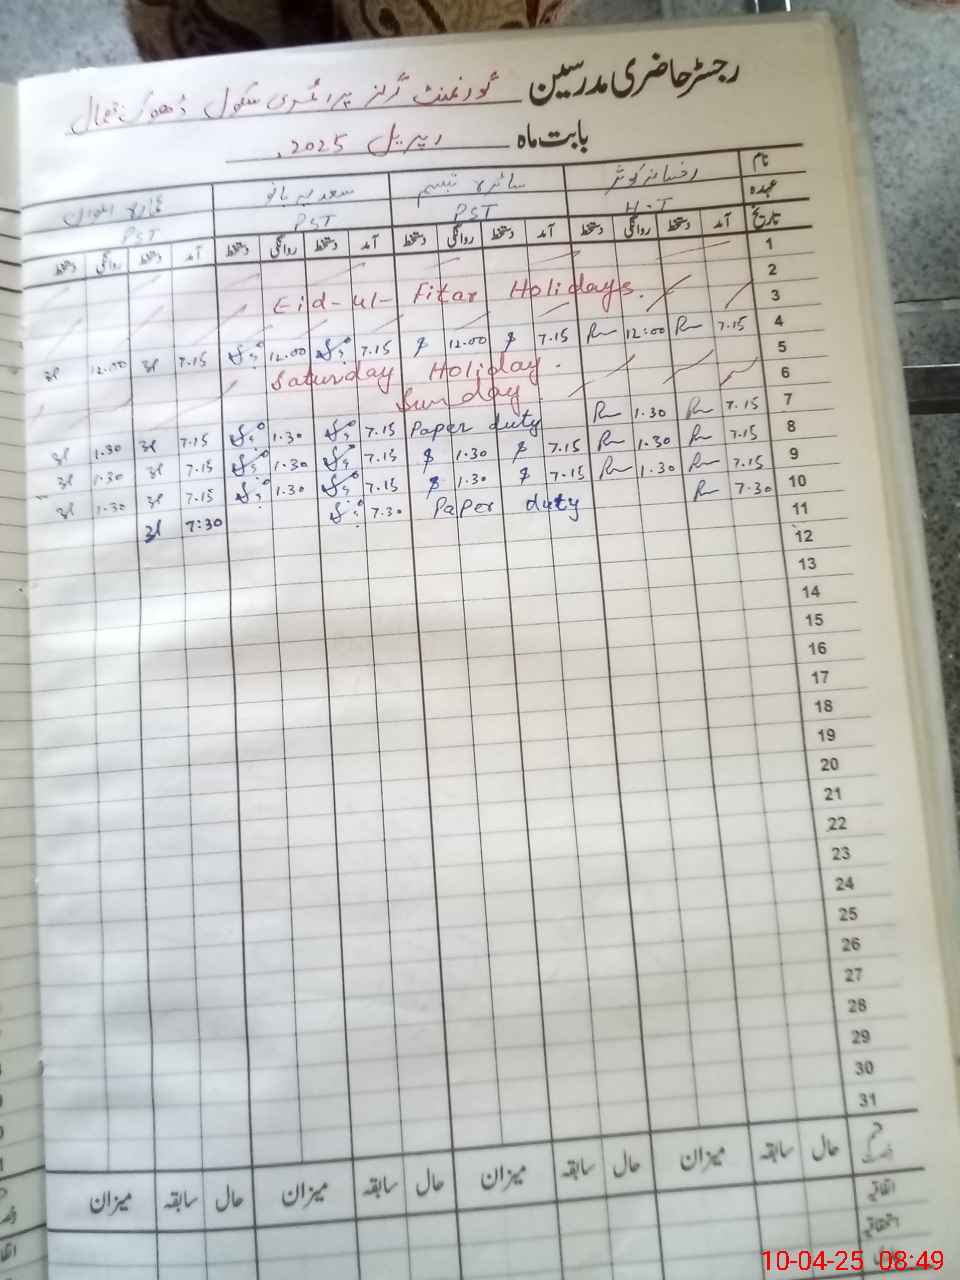 رجسٹر حاضری مدرسین گورنمنٹ گرلز پرائمری سکول ڈھوک
بابت ماہ اپریل 2025
نام رخسانہ کوثر سائرہ تبسم سعدیہ بانو
عہدہ H.T PST PST PST
تاریخ آمد دستخط روانگی دستخط آمد دستخط روانگی دستخط آمد دستخط روانگی دستخط آمد دستخط روانگی دستخط
1
2
3 Eid-ul-Fitar Holidays.
4 7.15 12:00 7.15 12.00 7.15 12.00 7.15 12.00
5 Saturday Holiday.
6 Sunday
7 7.15 1.30 Paper duty 7.15 1.30 7.15 1.30
8 7.15 1.30 7.15 1.30 7.15 1.30 7.15 1.30
9 7.15 1.30 7.15 1.30 7.15 1.30 7.15 1.30
10 7.30 Paper duty 7.30 7:30
11
12
13
14
15
16
17
18
19
20
21
22
23
24
25
26
27
28
29
30
31
حال سابقہ میزان حال سابقہ میزان حال سابقہ میزان حال سابقہ میزان
اتفاقیہ
استحقاقیہ
10-04-25 08:49